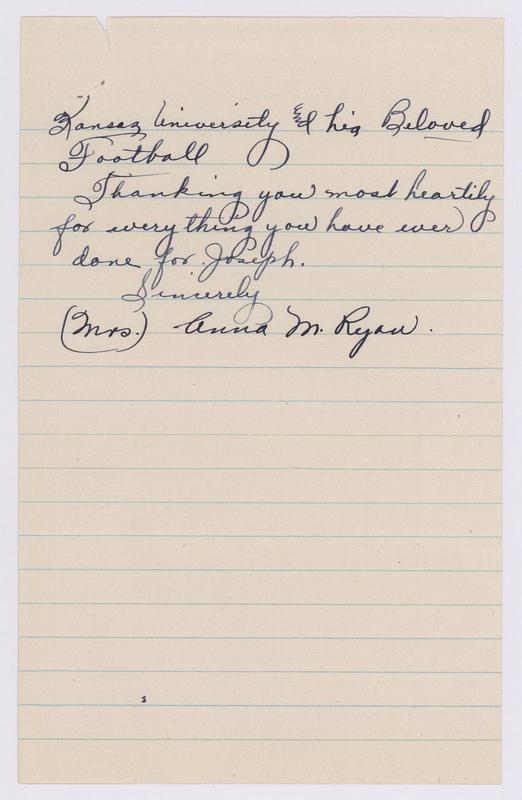 Kansas University & his Beloved
Football
Thanking you most heartily
for everything you have ever
done for Joseph.
Sincerely
(Mrs.) Anna M. Ryan.